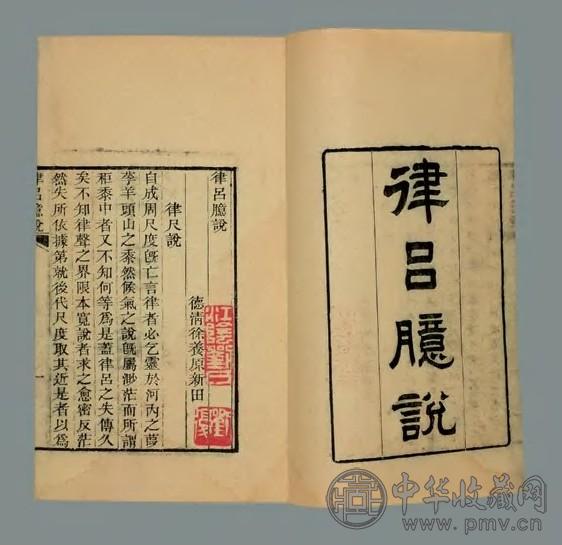 律呂臆說
律呂臆說
德清徐養原新田
律尺說
自成周尺度旣亡言律者必乞靈於河內之葭
莩羊頭山之黍然候氣之說旣屬渺茫而所謂
秬黍中者又不知何等爲是蓋律呂之失傳久
矣不知律聲之界限本寬說者求之愈密反茫
然失所依據第就後代尺度取其近是者以爲
律呂臆說
一
中华收藏网
www.pmv.cn